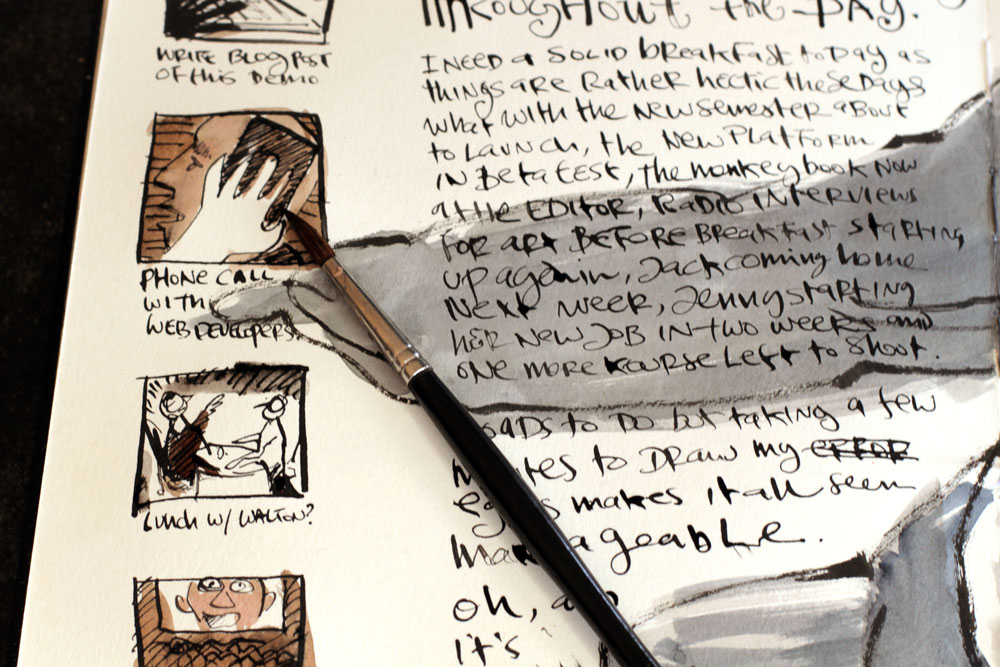 WRITE BLOG POST
OF this DEMO
PHONE CALL
WITH
WEB DEVELOPERS.
LUNCH W/ WALTON?
throughout the DAY.
I NEED a SOLID breakfast toDay as
things are Rather hectic these Days
what with the new semester about
to Launch, the New Platform
IN Beta test, the monkey book now
at the EDITOR, RADIO INTERVIEWS
FOR ART BEFORE BREAKFAST starting
up again, Jack coming home
Next week, Jenny starting
her NEW JOB IN two weeks and
one more course Left to shoot.
to DO but taking a few
to DRAW my
makes it all seem
oh,
it's